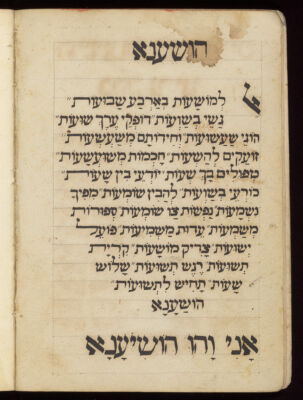 הושענא
אל
לְמוֹשָׁעוֹת בְּאַרְבַּע שְׁבוּעוֹת
נָשֵׁי בְּשַׁוְעוֹת דּוֹפְקֵי עֶרֶךְ שׁוּעוֹת
הוֹגֵי שַׁעֲשׁוּעוֹת וְחִידוֹתָם מִשְׁתַּעְשְׁעוֹת
זוֹעֲקִים לְהַשְׁעוֹת חֲכָמוֹת מְשׁוּעֲשָׁעוֹת
טְפוּלִים בָּךְ שָׁעוֹת יוֹדְעֵי בִין שָׁעוֹת
כּוֹרְעֵי בְּשַׁוְעוֹת לְהָבִין שׁוֹמְעוֹת מִפִּיךָ
נִשְׁמָעוֹת נְפָשׁוֹת צַו שׁוֹמְעוֹת סְפוּרוֹת
מַשְׁמָעוֹת עֵדוּת מַשְׁמִיעוֹת פּוֹעֵל
יְשׁוּעוֹת צַדִּיק מוֹשָׁעוֹת קִרְיַת
תְּשׁוּעוֹת רֶגֶשׁ תְּשׁוּעוֹת שָׁלוֹשׁ
שָׁעוֹת תָּחִישׁ לִתְשׁוּעוֹת
הוֹשַׁעֲנָא
אֲנִי וָהוּ הוֹשִׁיעֲנָא